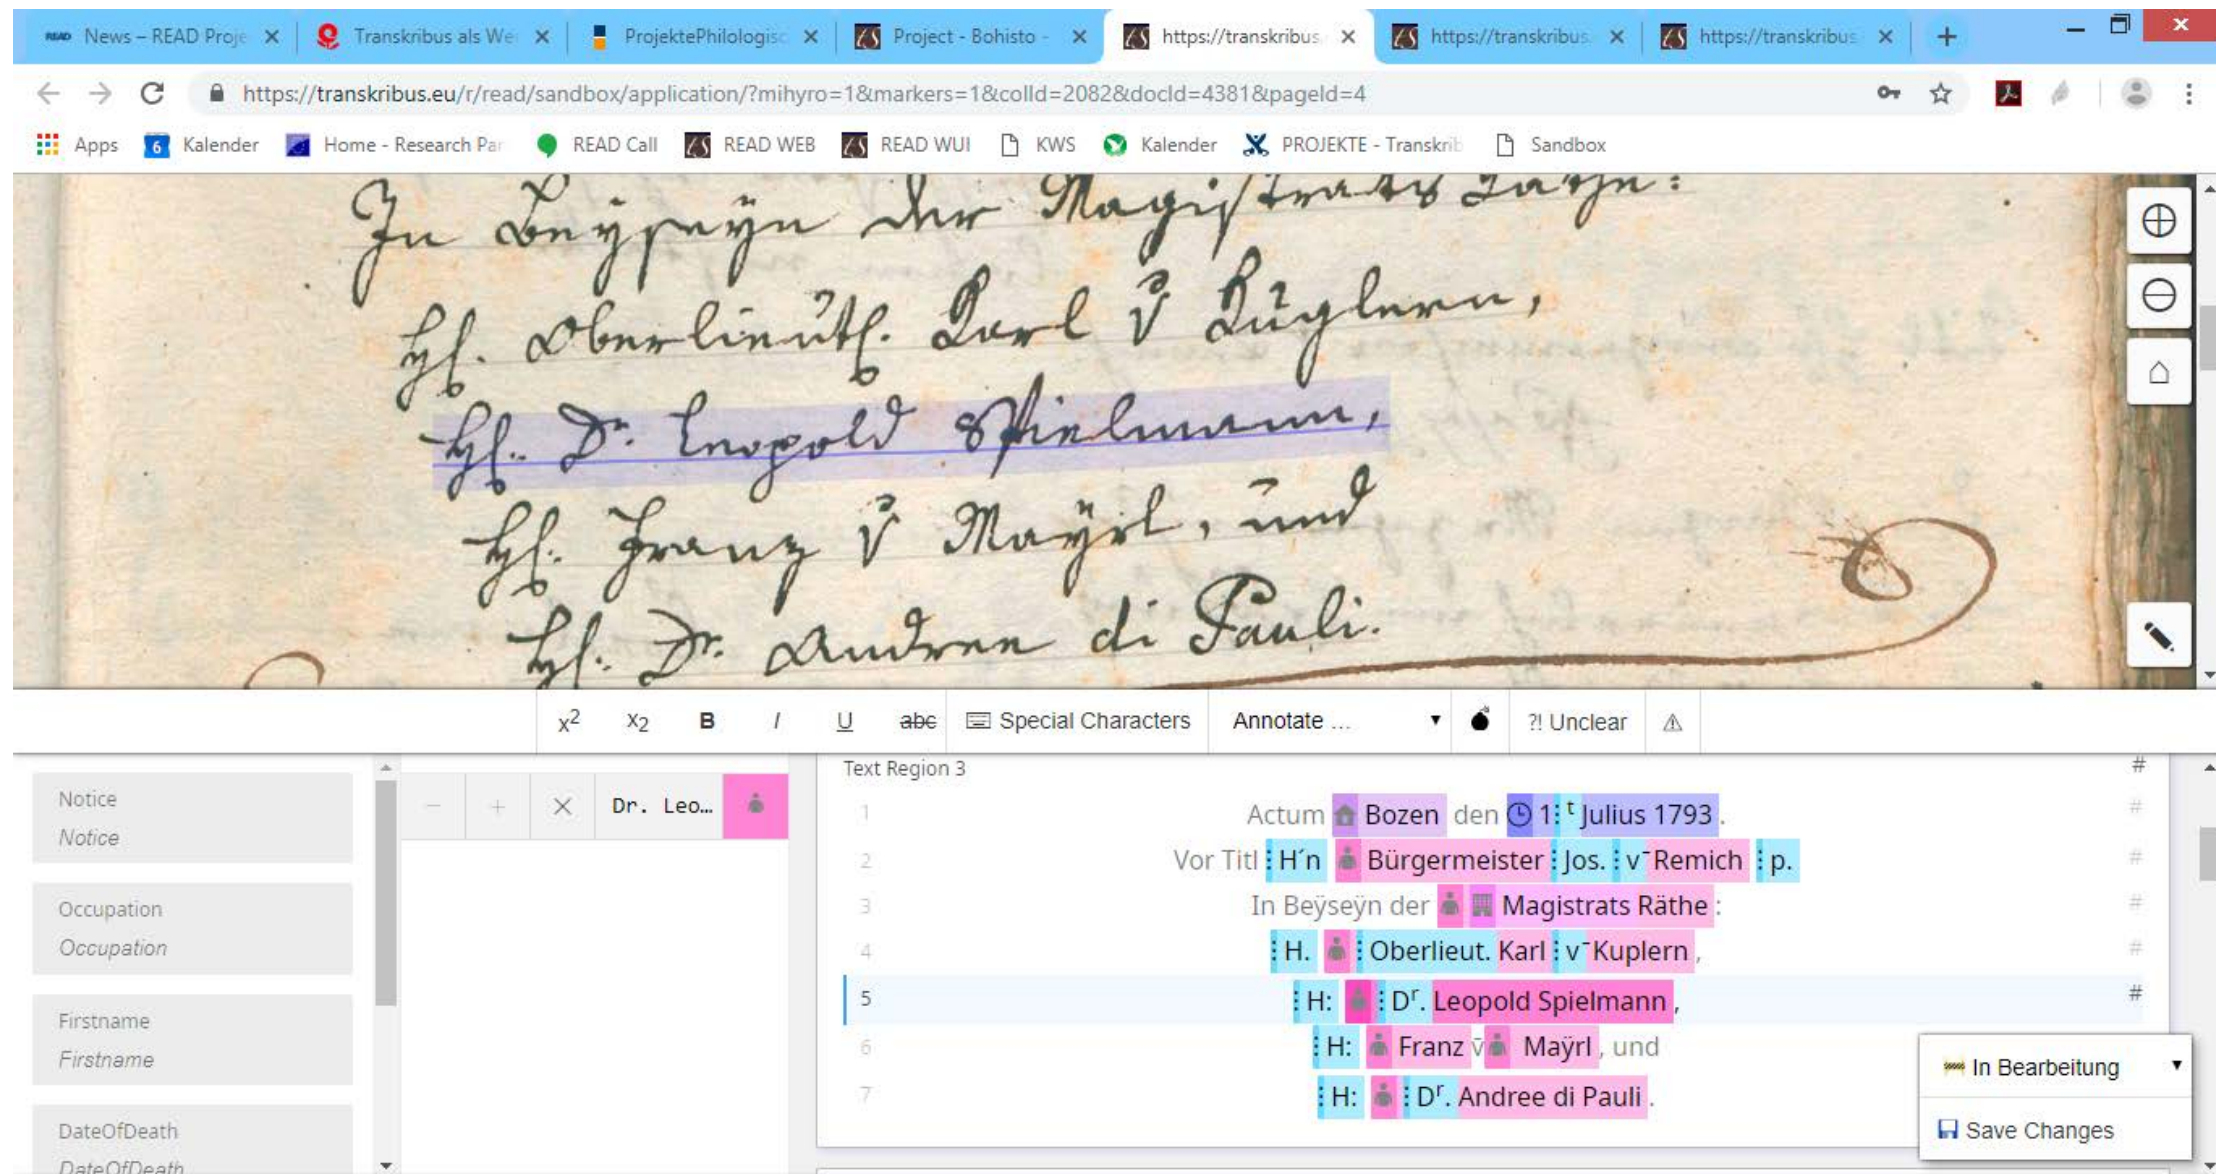 READ News – READ Proje
Transkribus als We
ProjektePhilologisc
Project - Bohisto -
https://transkribus.
https://transkribus.
https://transkribus
https://transkribus.eu/r/read/sandbox/application/?mihyro=1&markers=1&colId=2082&docId=4381&pageId=4
Apps 6 Kalender Home - Research Par READ Call READ WEB READ WUI KWS Kalender PROJEKTE - Transkrib Sandbox
In Beÿseÿn der Magistrats Räthe:
H. Oberlieut. Karl v̄ Kuglern,
H: Dr. Leopold Spielmann,
H: Franz v̄ Maÿrl, und
H: Dr. Andree di Pauli.
x² x₂ B I U abc Special Characters Annotate ... ?! Unclear
Notice
Notice
Occupation
Occupation
Firstname
Firstname
DateOfDeath
DateOfDeath
− + × Dr. Leo…
Text Region 3 #
1 Actum Bozen den 1 ᵗ Julius 1793 . #
2 Vor Titl H´n Bürgermeister Jos. v¯ Remich p. #
3 In Beÿseÿn der Magistrats Räthe : #
4 H. Oberlieut. Karl v¯ Kuplern , #
5 H: Dʳ. Leopold Spielmann , #
6 H: Franz v̄ Maÿrl , und
7 H: Dʳ. Andree di Pauli .
In Bearbeitung
Save Changes